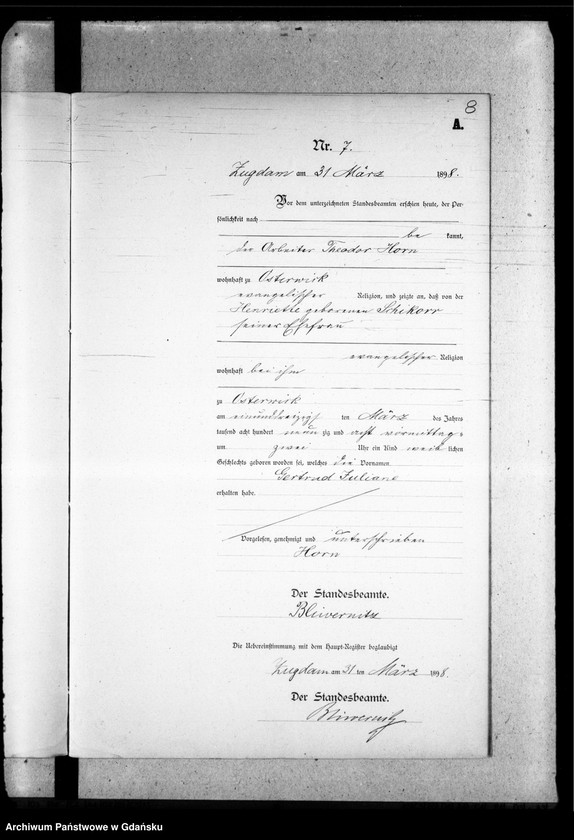 8
A.
Nr. 7.
Zugdam am 31 März 1898.
Vor dem unterzeichneten Standesbeamten erschien heute, der Per-
sönlichkeit nach
be kannt,
der Arbeiter Theodor Horn
wohnhaft zu Osterwick
evangelischer Religion, und zeigte an, daß von der
Henriette geborenen Schikorr
seiner Ehefrau
evangelischer Religion
wohnhaft bei ihm
zu Osterwick
am einunddreizigst ten März des Jahres
tausend acht hundert neun zig und acht vormittags
um zwei Uhr ein Kind weib lichen
Geschlechts geboren worden sei, welches die Vornamen
Gertrud Juliane
erhalten habe.
Vorgelesen, genehmigt und unterschrieben
Horn
Der Standesbeamte.
Bliwernitz
Die Uebereinstimmung mit dem Haupt-Register beglaubigt
Zugdam am 31 ten März 1898.
Der Standesbeamte.
Bliwernitz
Archiwum Państwowe w Gdańsku